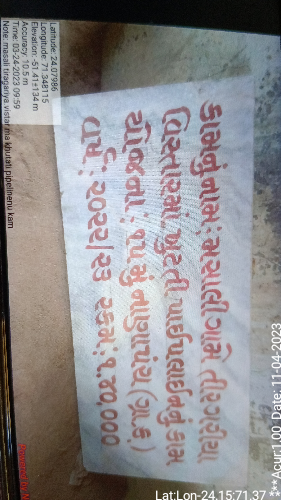 કામનું નામ: મસાલી ગામે તીરગરીયા
વિસ્તારમાં ખુટતી પાઈપલાઈનનું કામ
યોજના: ૧૫મુ નાણાપંચ (ગ્રા.ક)
વર્ષ: ૨૦૨૨/૨૩ રકમ: ૧,૪૦,૦૦૦
Latitude: 24.07986
Longitude: 71.348115
Elevation: -51.41±134 m
Accuracy: 10.5 m
Time: 03-24-2023 09:59
Note: masali tiragariya vistar ma khutati pipelinenu kam
Lat:Lon-24.15:71.37
***Acur:1.00 Date: 11-04-2023